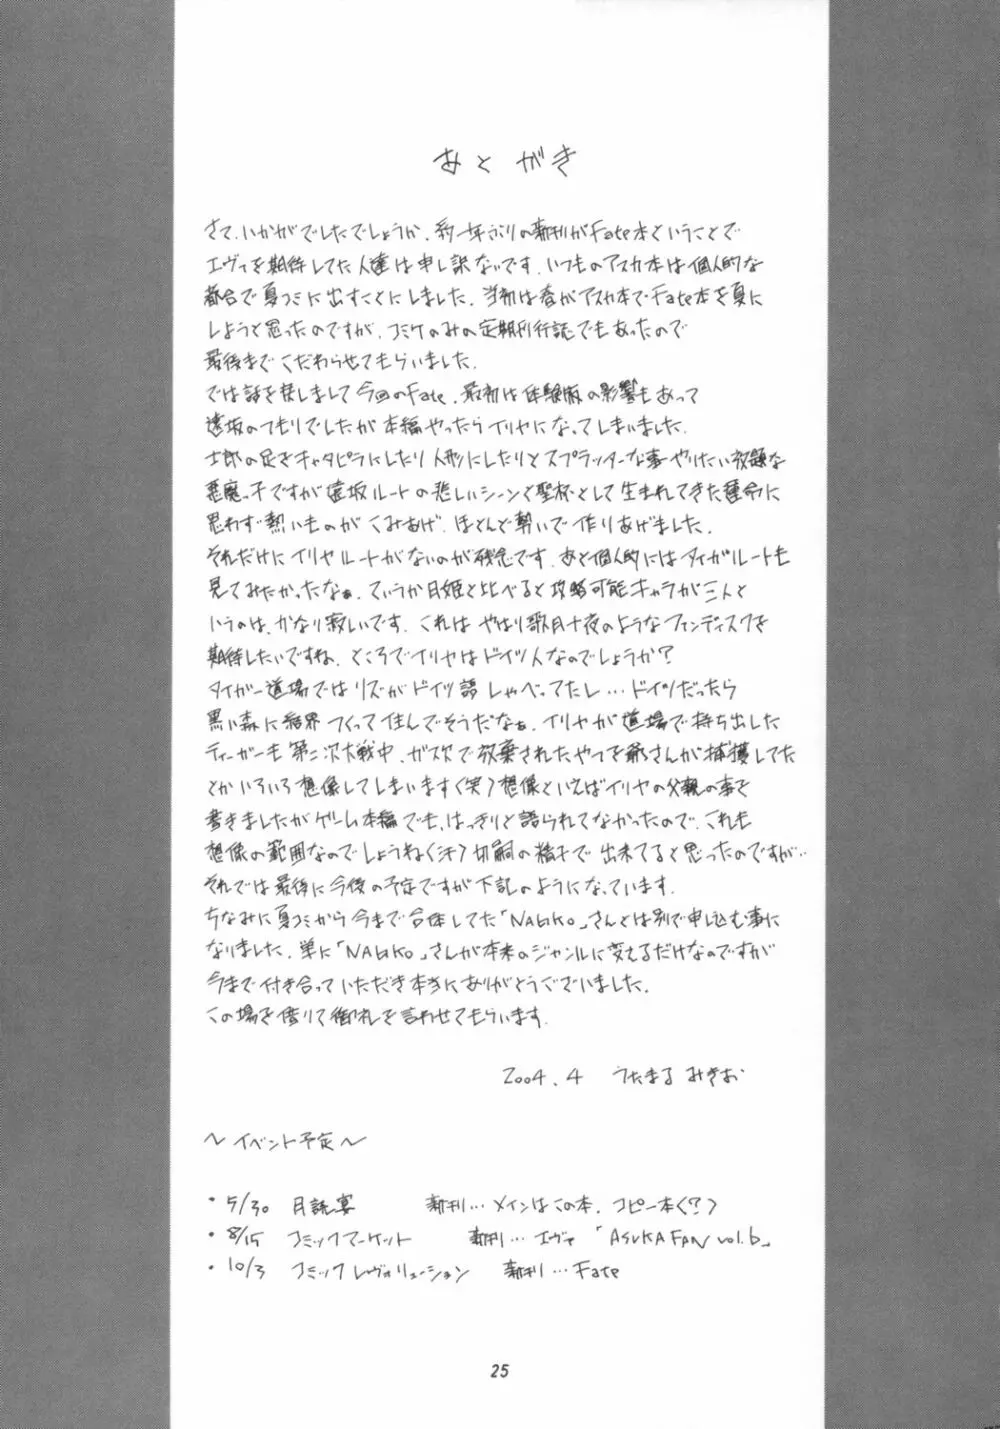 あとがき
さて、いかがでしたでしょうか。約一年ぶりの新刊がFate本ということで
エヴァを期待してた人達は申し訳ないです。いつものアスカ本は個人的な
都合で夏コミに出すことにしました。当初は春がアスカ本でFate本を夏に
しようと思ったのですが、コミケのみの定期刊行誌でもあったので
最後までこだわらせてもらいました。
では話を戻しまして今回のFate、最初は体験版の影響もあって
遠坂のつもりでしたが本編やったらイリヤになってしまいました。
士郎の足をキャタピラにしたり人形にしたりとスプラッターな事やりたい放題な
悪魔っ子ですが遠坂ルートの悲しいシーンと聖杯として生まれてきた運命に
思わず熱いものがこみあげ、ほとんど勢いで作りあげました。
それだけにイリヤルートがないのが残念です。あと個人的にはタイガルートも
見てみたかったなぁ。ていうか月姫と比べると攻略可能キャラが三人と
いうのは、かなり寂しいです。これはやはり歌月十夜のようなファンディスクを
期待したいですね。ところでイリヤはドイツ人なのでしょうか？
タイガー道場ではリズがドイツ語しゃべってたし…ドイツだったら
黒い森に結界つくって住んでそうだなぁ。イリヤが道場で持ち出した
ティーガーも第二次大戦中、ガス欠で放棄されたやつを爺さんが捕獲してた
とかいろいろ想像してしまいます(笑)想像といえばイリヤの父親の事を
書きましたがゲーム本編でも、はっきりと語られてなかったので、これも
想像の範囲なのでしょうね(汗)切嗣の精子で出来てると思ったのですが…
それでは最後に今後の予定ですが下記のようになっています。
ちなみに夏コミから今まで合体してた「NAGIKO」さんとは別で申し込む事に
なりました。単に「NAGIKO」さんが本来のジャンルに変えるだけなのですが
今まで付き合っていただき本当にありがとうございました。
この場を借りて御礼を言わせてもらいます。
2004.4 うたまる みきお
～イベント予定～
・5/30 月読宴 新刊…メインはこの本、コピー本(?)
・8/15 コミックマーケット 新刊…エヴァ「ASUKA FAN vol.6」
・10/3 コミックレヴォリューション 新刊…Fate
25